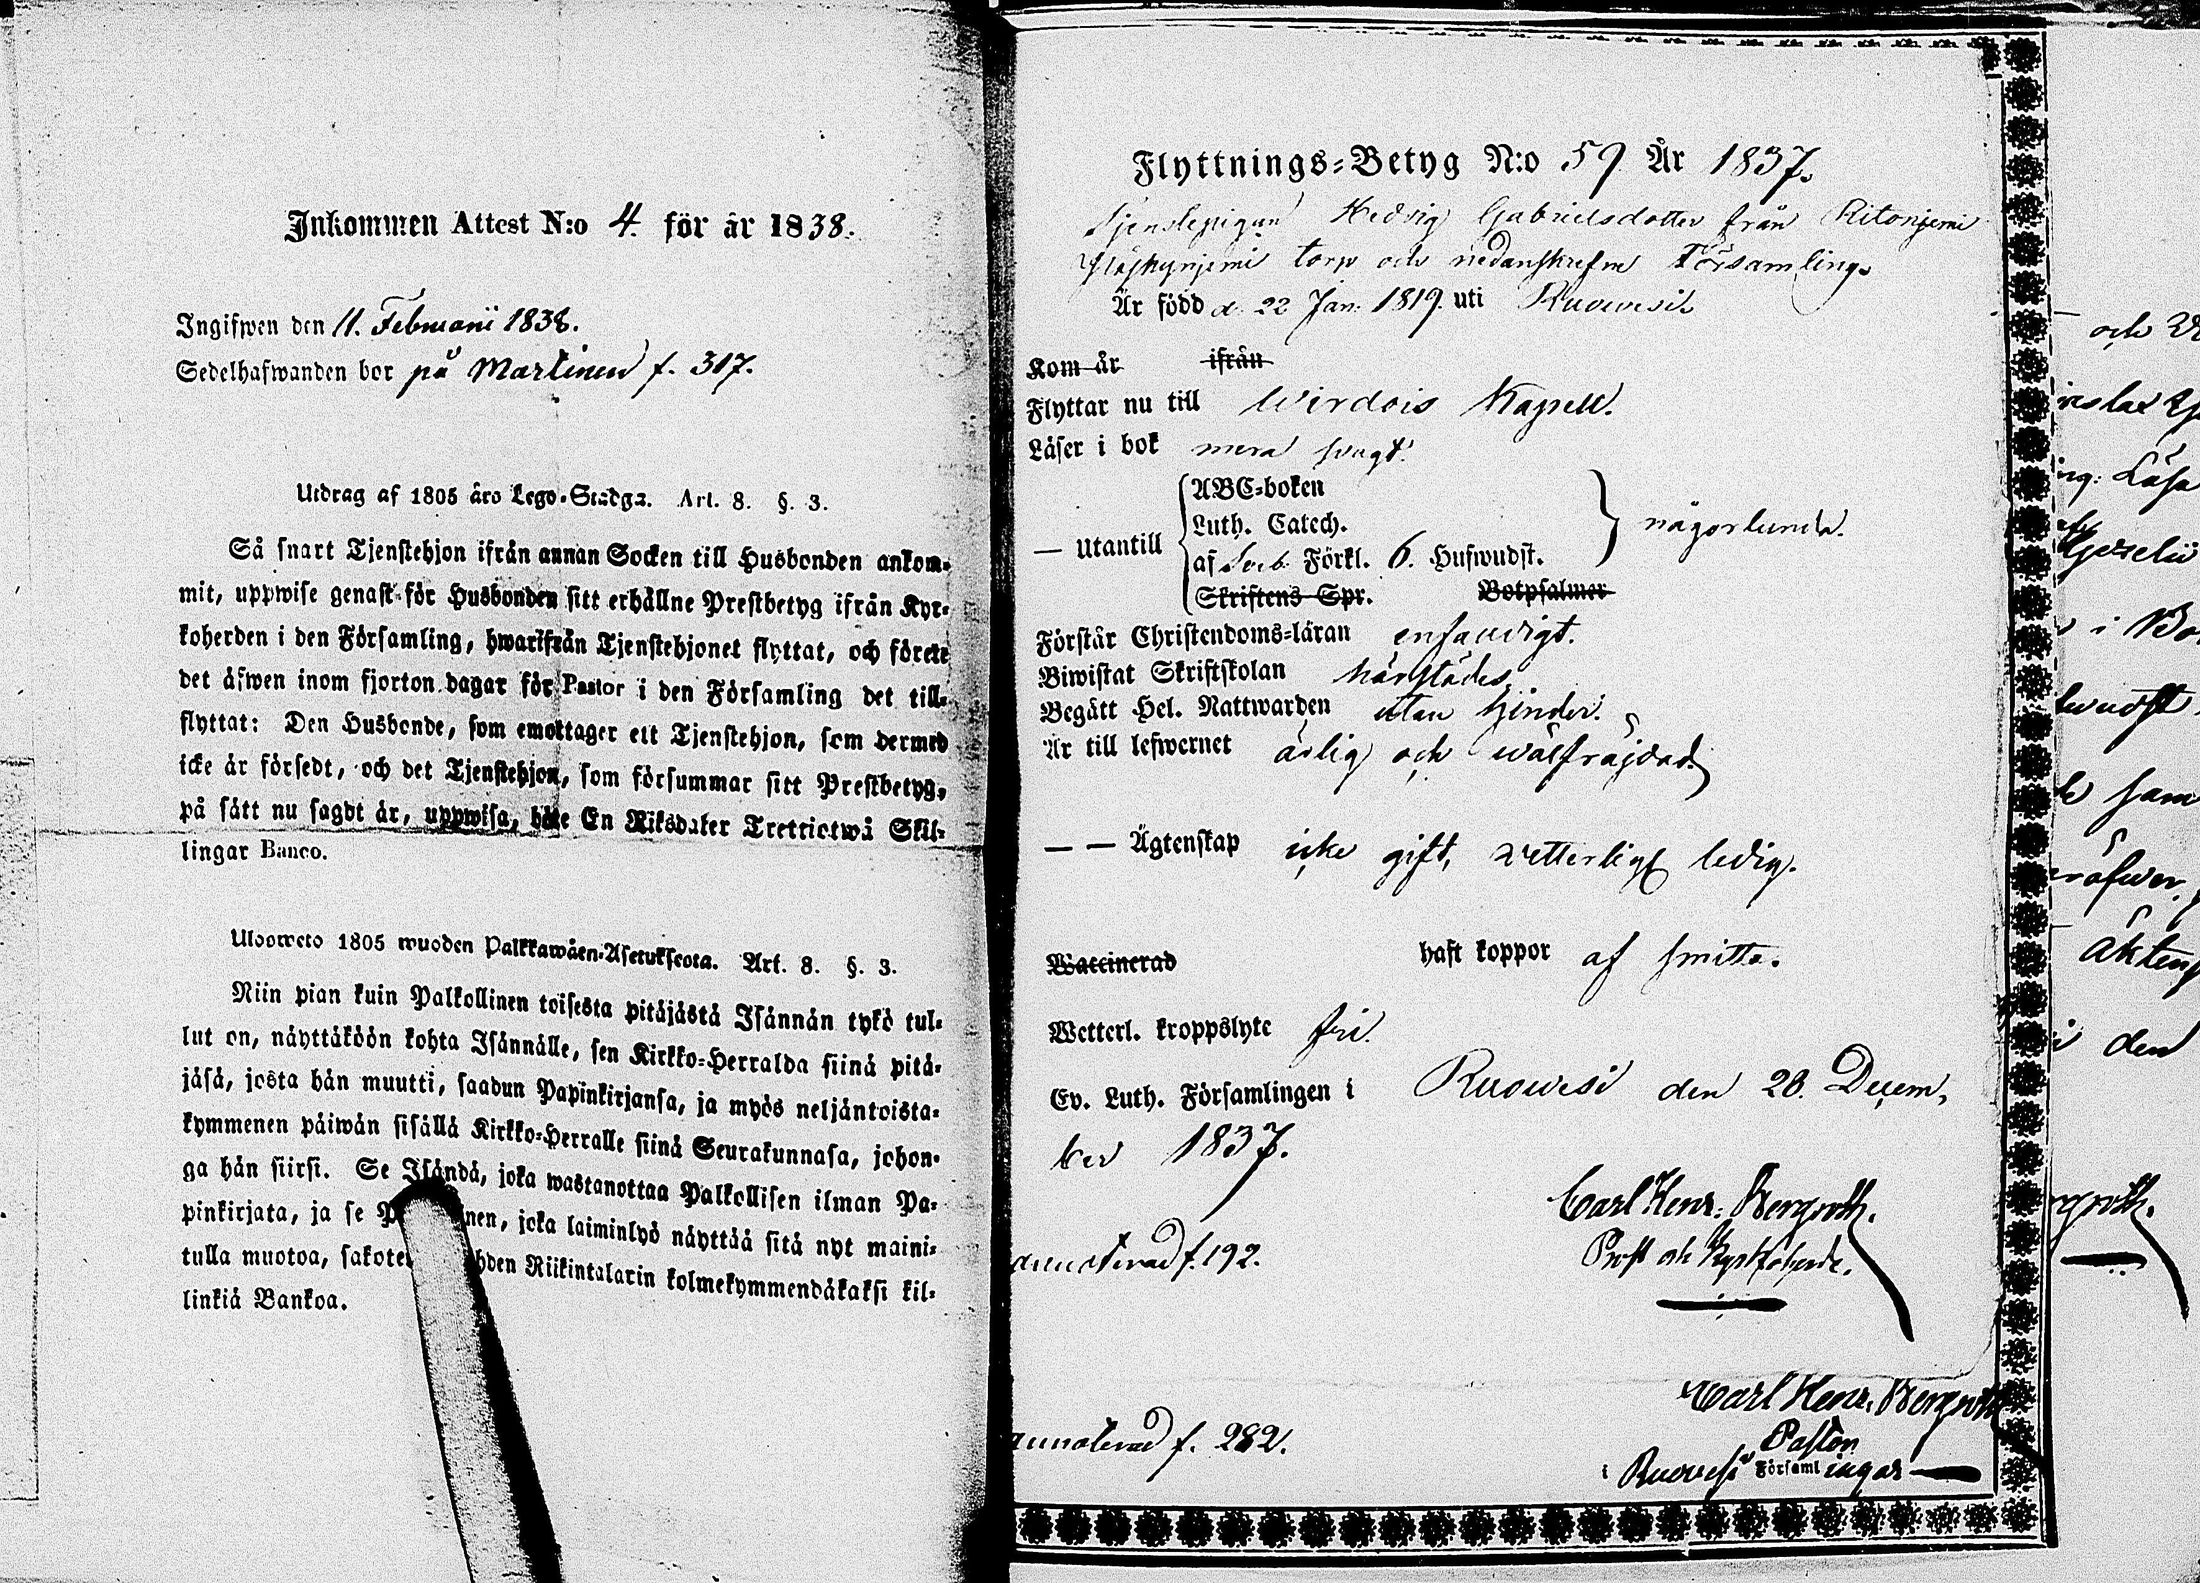 Inkommen Attest N:o 4. för år 1838.
Ingifwen den 11. Februarii 1838.
Sedelhafwanden bor på Martinen f. 317.
Utdrag af 1805 års Lego-Stadga. Art. 8. §. 3.
Så snart Tjenstehjon ifrån annan Socken till Husbonden ankom-
mit, uppwise genast för Husbonden sitt erhållne Prestbetyg ifrån Kyr-
koherden i den Församling, hwarifrån Tjenstehjonet flyttat, och förete
det äfwen inom fjorton dagar för Pastor i den Församling det till-
flyttat: Den Husbonde, som emottager ett Tjenstehjon, som dermed
icke är försedt, och det Tjenstehjon, som försummar sitt Prestbetyg,
på sätt nu sagdt är, uppwisa, böte En Riksdaler Trettiotwå Skil-
lingar Banco.
Uloosweto 1805 wuoden Palkkawäen-Asetuksesta. Art. 8. §. 3.
Niin pian kuin Palkollinen toisesta pitäjästä Isännän tykö tul-
lut on, näyttäköön kohta Isännälle, sen Kirkko-Herralda siinä pitä-
jäsä, josta hän muutti, saadun Papinkirjansa, ja myös neljäntoista-
kymmenen päiwän sisällä Kirkko-Herralle siinä Seurakunnasa, johon-
ga hän siirsi. Se Isändä, joka wastanottaa Palkollisen ilman Pa-
pinkirjata, ja se P nen, joka laiminlyö näyttää sitä nyt maini-
tulla muotoa, sakote hden Riikintalarin kolmekymmendäkaksi kil-
linkiä Bankoa.
Flyttnings-Betyg N:o 59 År 1837.
Tjenstepigan Hedvig Gabrielsdotter från Ritonjemi
torp och nedanskrefne Församling.
Är född d. 22 Jan. 1819. uti Ruowesi
Kom år ifrån
Flyttar nu till Wirdois Kapell.
Läser i bok mera swagt.
— Utantill ABC-boken
Luth. Catech. någorlunda.
af Sveb. Förkl. 6. Hufwudst.
Skriftens Spr. Botpsalmer
Förstår Christendoms-läran enfaldigt.
Biwistat Skriftskolan härstädes
Begått Hel. Nattwarden utan hinder.
Är till lefwernet ärlig och wälfräjdad.
— — Ägtenskap icke gift, wetterligt ledig.
Waccinerad haft koppor af smitta.
Wetterl. kroppslyte fri.
Ev. Luth. Församlingen i Ruowesi den 28. Decem,
ber 1837.
Carl Henr. Bergroth.
Prost och Kyrkoherde.
annoterad f. 192.
Carl Henr. Bergroth
Pastor
annoterad f. 282.
i Ruovesi Församlingar
och
Läsa
i
sam
äkten
i den